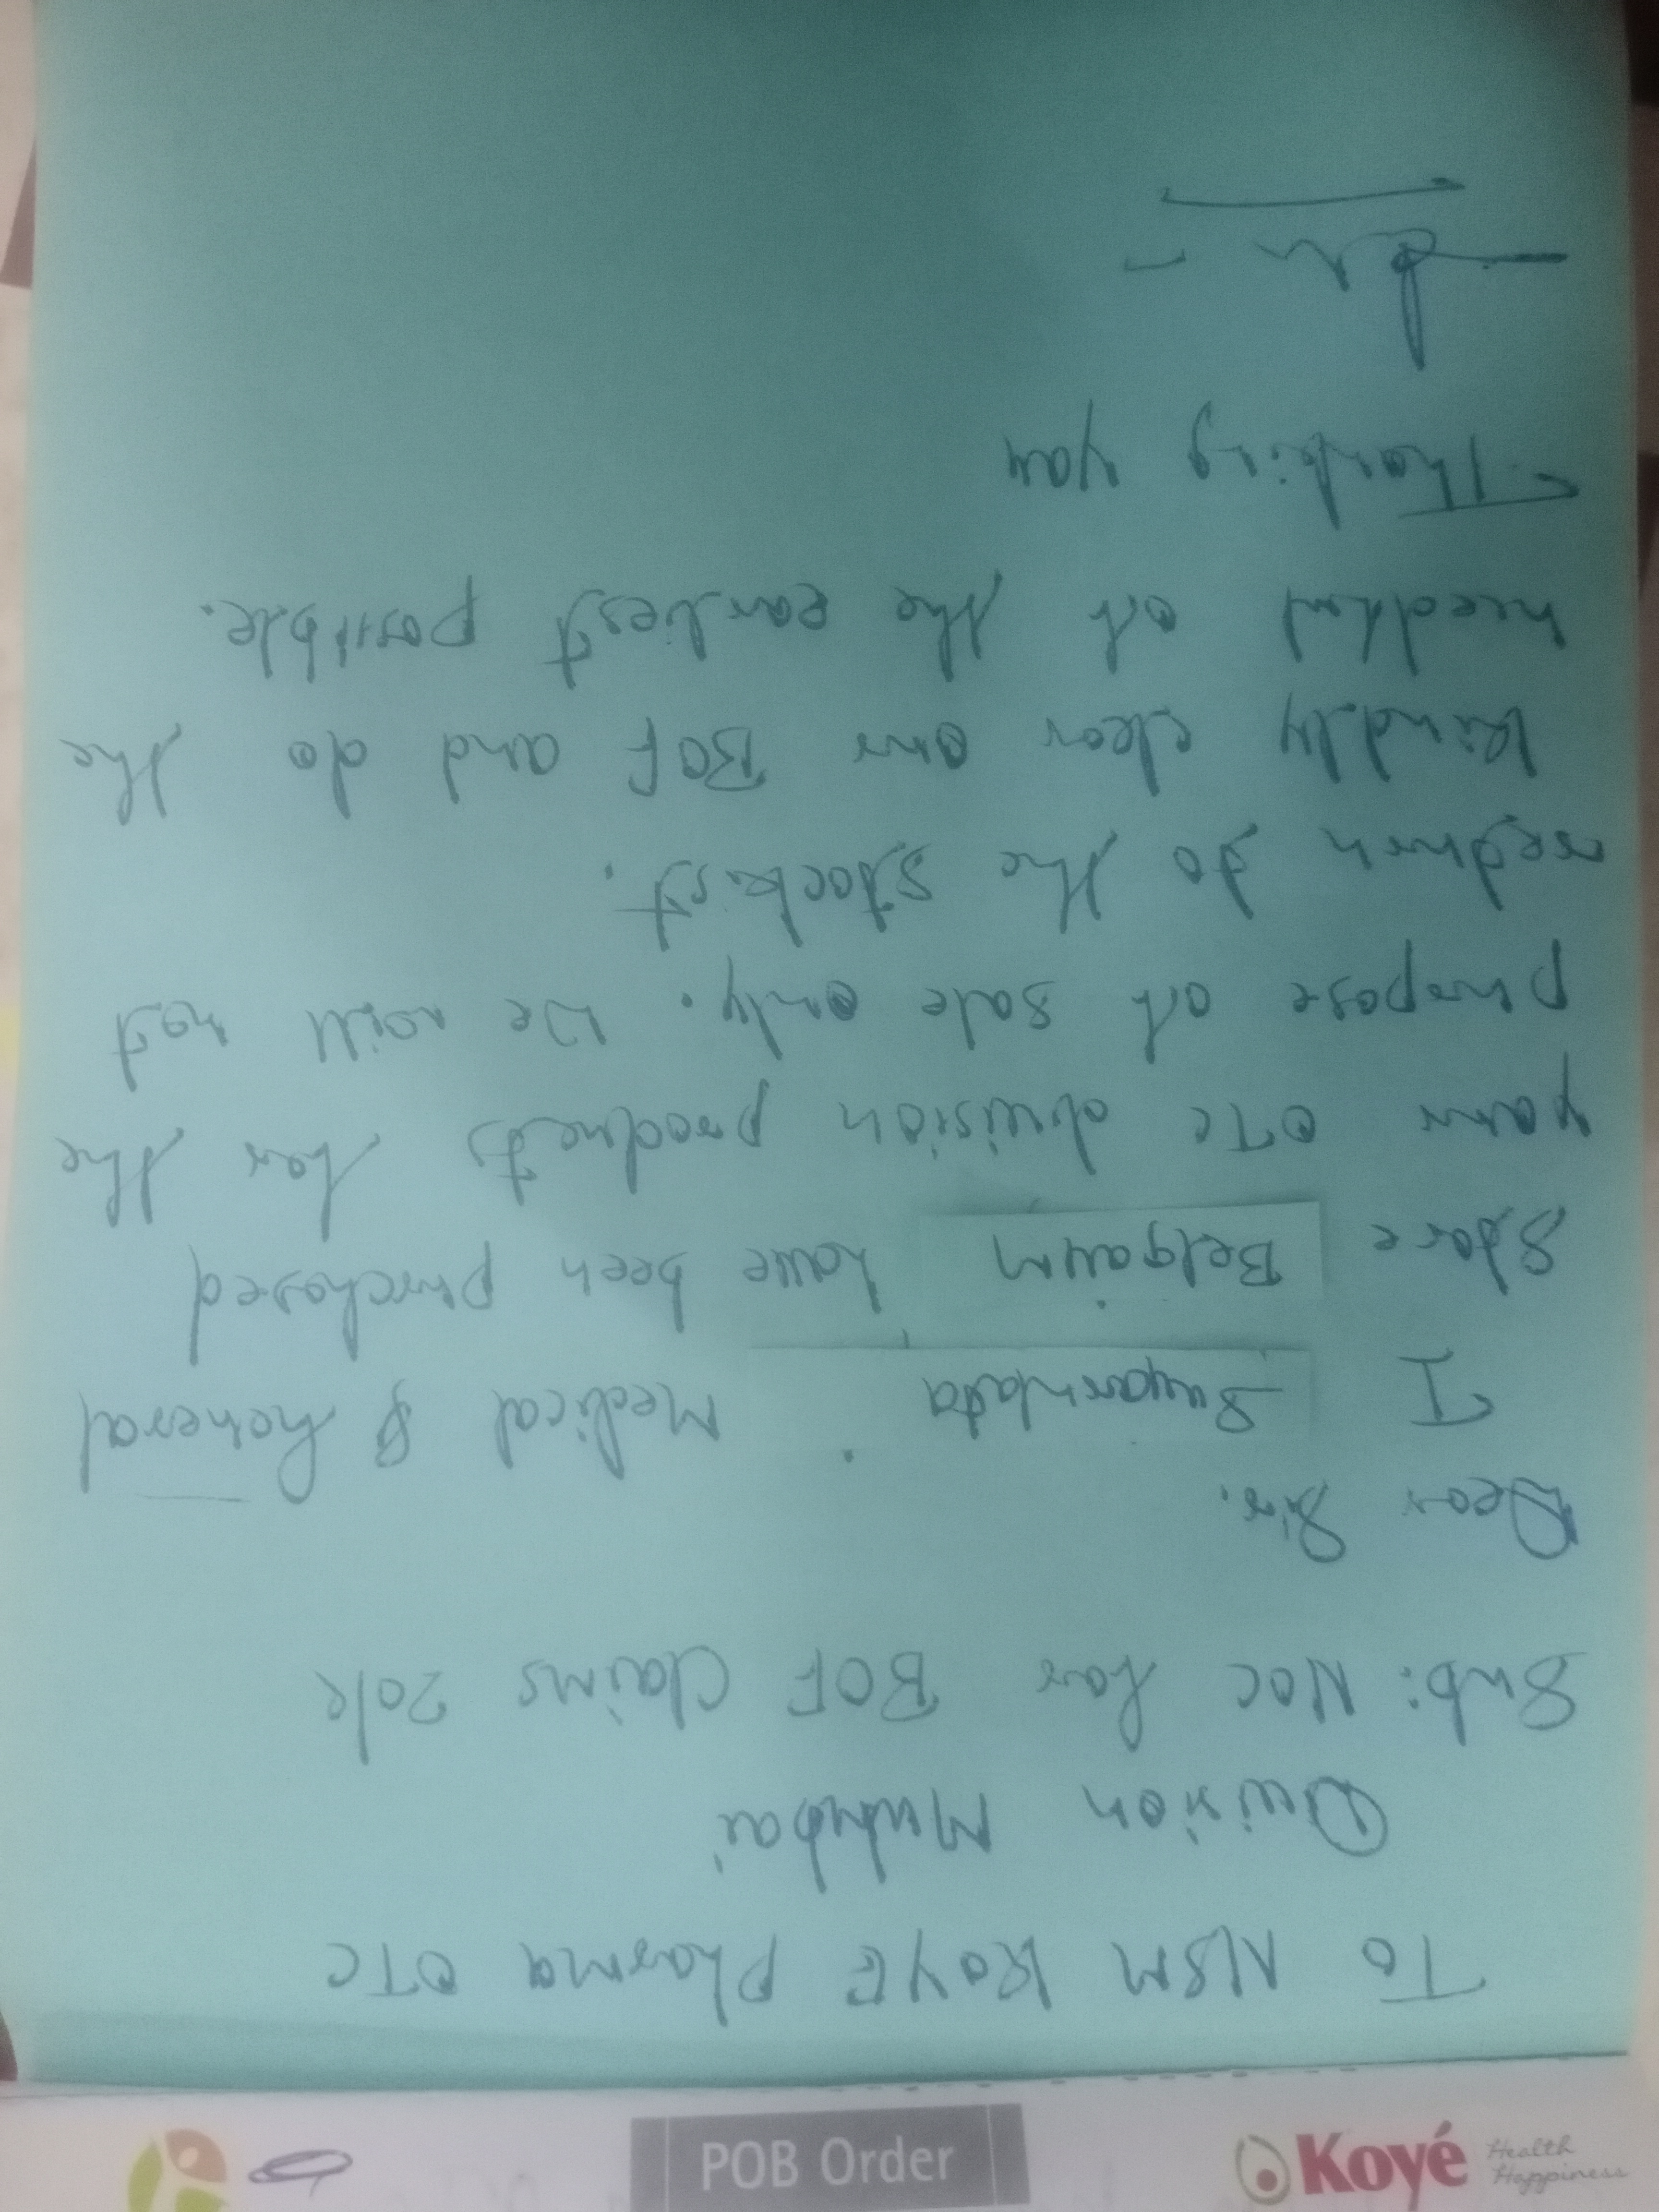 To NSM KOYE Pharma OTC
Division Mumbai
Sub: NOC for BOF Claims 20k
Dear Sir.
I Suyarnlata Medical & General
Store Belgaum have been purchased
your OTC division products for the
purpose of sale only. We will not
to the stockist.
kindly clear our BOF and do the
needful at the earliest possible.
Thanking you
Koyé Health Happiness
POB Order